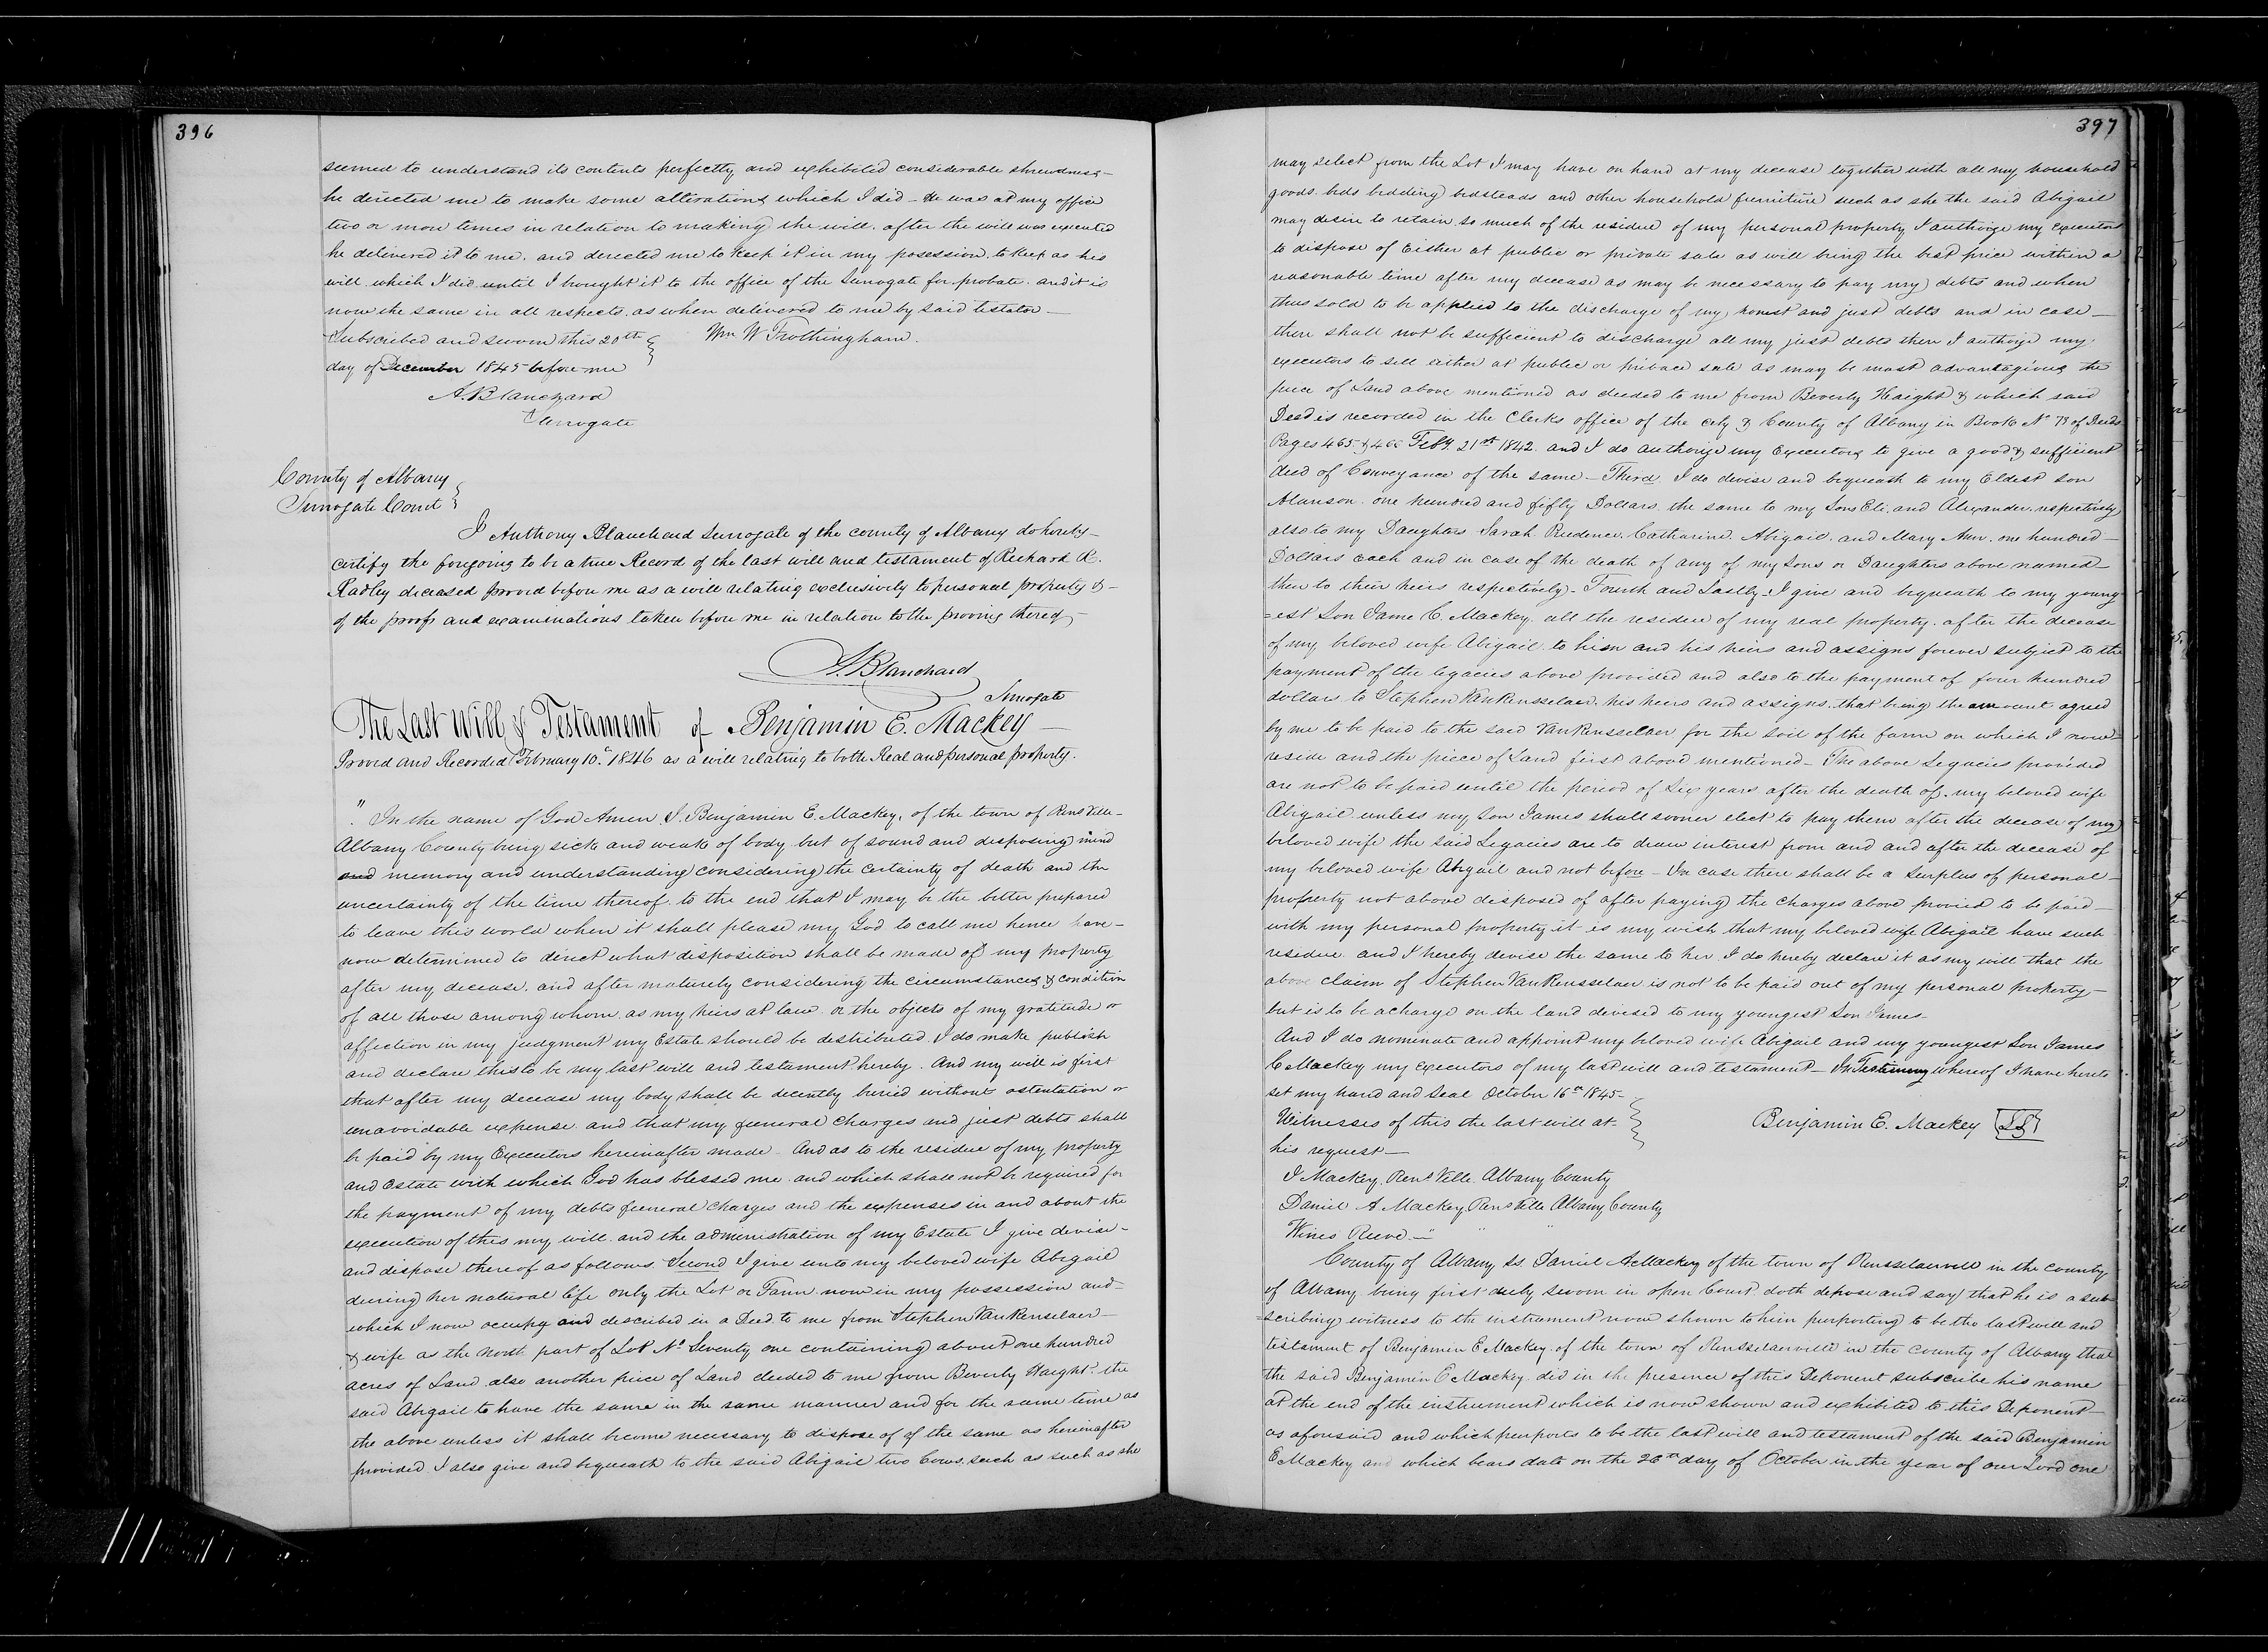 396
seemed to understand its contents perfectly and exhibited considerable shrewdness—
he directed me to make some alterations which I did – He was at my office
two or more times in relation to making the will. after the will was executed
he delivered it to me. and directed me to keep it in my posession to keep as his
will which I did until I brought it to the office of the Surrogate for probate. and it is
now the same in all respects. as when delivered to me by said testator—
Subscribed and sworn this 20th } Wm W Frothingham.
day of December 1845 before me
A. Blanchard
Surrogate
County of Albany
Surrogate Court }
I Anthony Blanchard Surrogate of the county of Albany do hereby—
certify the foregoing to be a true Record of the last will and testament of Richard R.
Radley deceased proved before me as a will relating exclusively to personal property &—
of the proofs and examinations taken before me in relation to the proving thereof
A. Blanchard
Surrogate
The Last Will & Testament of Benjamin E. Mackey—
Proved and Recorded February 10th 1846 as a will relating to both Real and personal property.
". In the name of God Amen I. Benjamin E. Mackey, of the town of Rens Ville—
Albany County being sick and weak of body but of sound and disposing mind
and memory and understanding considering the certainty of death and the
uncertainty of the time thereof. to the end that I may be the better prepared
to leave this world when it shall please my God to call me hence have—
now determined to direct what disposition shall be made of my property
after my decease. and after maturely considering the circumstances & condition
of all those among whom. as my heirs at law or the objects of my gratitude or
affection in my judgment my Estate should be destributed I do make publish
and declare this to be my last will and testament hereby. And my will is first
that after my decease my body shall be decently buried without ostentation or
unavoidable expense. and that my funeral charges and just debts shall
be paid by my Executors hereinafter made – And as to the residue of my property
and Estate with which God has blessed me. and which shall not be required for
the payment of my debts funeral charges and the expenses in and about the
execution of this my will. and the administration of my Estate I give devise—
and dispose thereof as follows. Second I give unto my beloved wife Abigail
during her natural life only the Lot or Farm now in my possession and—
which I now occupy and described in a Deed to me from Stephen Van Renselaer—
& wife as the North part of Lot No Seventy one containing about one hundred
acres of Land also another piece of Land deeded to me from Beverly Haight. the
said Abigail to have the same in the same manner and for the same time as
the above unless it shall become necessary to dispose of of the same as hereinafter
provided. I also give and bequeath to the said Abigail two Cows. such as such as she
397
may select from the Lot I may have on hand at my decease together with all my household
goods. beds bedding bedsteads and other household furniture such as she the said Abigail
may desire to retain. so much of the residue of my personal property I authorize my executors
to dispose of Either at public or private sale as will bring the best price within a
reasonable time after my decease as may be necessary to pay my debts and when
thus sold to be applied to the discharge of my honest and just debts and in case—
there shall not be sufficient to discharge all my just debts then I authorize my
executors to sell either at public or private sale as may be most advantagious the
piece of Land above mentioned as deeded to me from Beverly Haight & which said
Deed is recorded in the Clerks office of the city & County of Albany in Book No 73 of Deeds
Pages 465 & 466 Feby. 21st 1842. and I do authorize my Executors to give a good & sufficient
deed of Conveyance of the same – Third. I do devise and bequeath to my Eldest son
Alanson. one hundred and fifty Dollars. the same to my Sons Eli. and Alexander. respectively
also to my Daughters Sarah. Prudence. Catharine. Abigail. and Mary Ann. one hundred—
Dollars each and in case of the death of any of my Sons or Daughters above named—
then to their heirs respectively – Fourth and Lastly – I give and bequeath to my young
=est Son Jame C. Mackey. all the residue of my real property. after the decease
of my beloved wife Abigail. to him and his heirs and assigns forever subject to the
payment of the legacies above provided and also to the payment of four hundred
dollars to Stephen VanRensselaer. his heirs and assigns. that being the amount agreed
by me to be paid to the said VanRensselaer for the soil of the farm on which I now—
reside and the piece of Land first above mentioned – The above Legacies provided
are not to be paid until the period of Six years after the death of. my beloved wife
Abigail unless my Son James shall sooner elect to pay them after the decease of my
beloved wife the said Legacies are to draw interest from and and after the decease of
my beloved wife Abigail and not before – In case there shall be a surplus of personal—
property not above disposed of after paying the charges above provied to be paid—
with my personal property it is my wish that my beloved wife Abigail have such
residue. and I hereby devise the same to her. I do hereby declare it as my will that the
above claim of Stephen VanRensselaer is not to be paid out of my personal property—
but is to be a charge on the land devised to my youngest Son James—
And I do nominate and appoint my beloved wife Abigail and my youngest Son James
C Mackey my executors of my last will and testament – In Testimony whereof I have hereto
set my hand and Seal October 16th 1845—
Witnesses of this the last will at } Benjamin E. Mackey LS
his request—
I Mackey. Rens Ville. Albany County
Daniel A. Mackey Rens Ville Albany County
Wines Reeve – " " "
County of Albany ss. Daniel A Mackey of the town of Rensselaerville in the county
of Albany being first duly sworn in open Court doth depose and say that he is a sub
=scribing witness to the instrument now shown to him purporting to be the last will and
testament of Benjamin E Mackey. of the town of Rensselaerville in the county of Albany that
the said Benjamin E Mackey did in the presence of this Deponent subscribe his name
at the end of the instrument which is now shown and exhibited to this Deponent—
as aforesaid and which purports to be the last will and testament of the said Benjamin
E Mackey and which bears date on the 26th day of October in the year of our Lord one